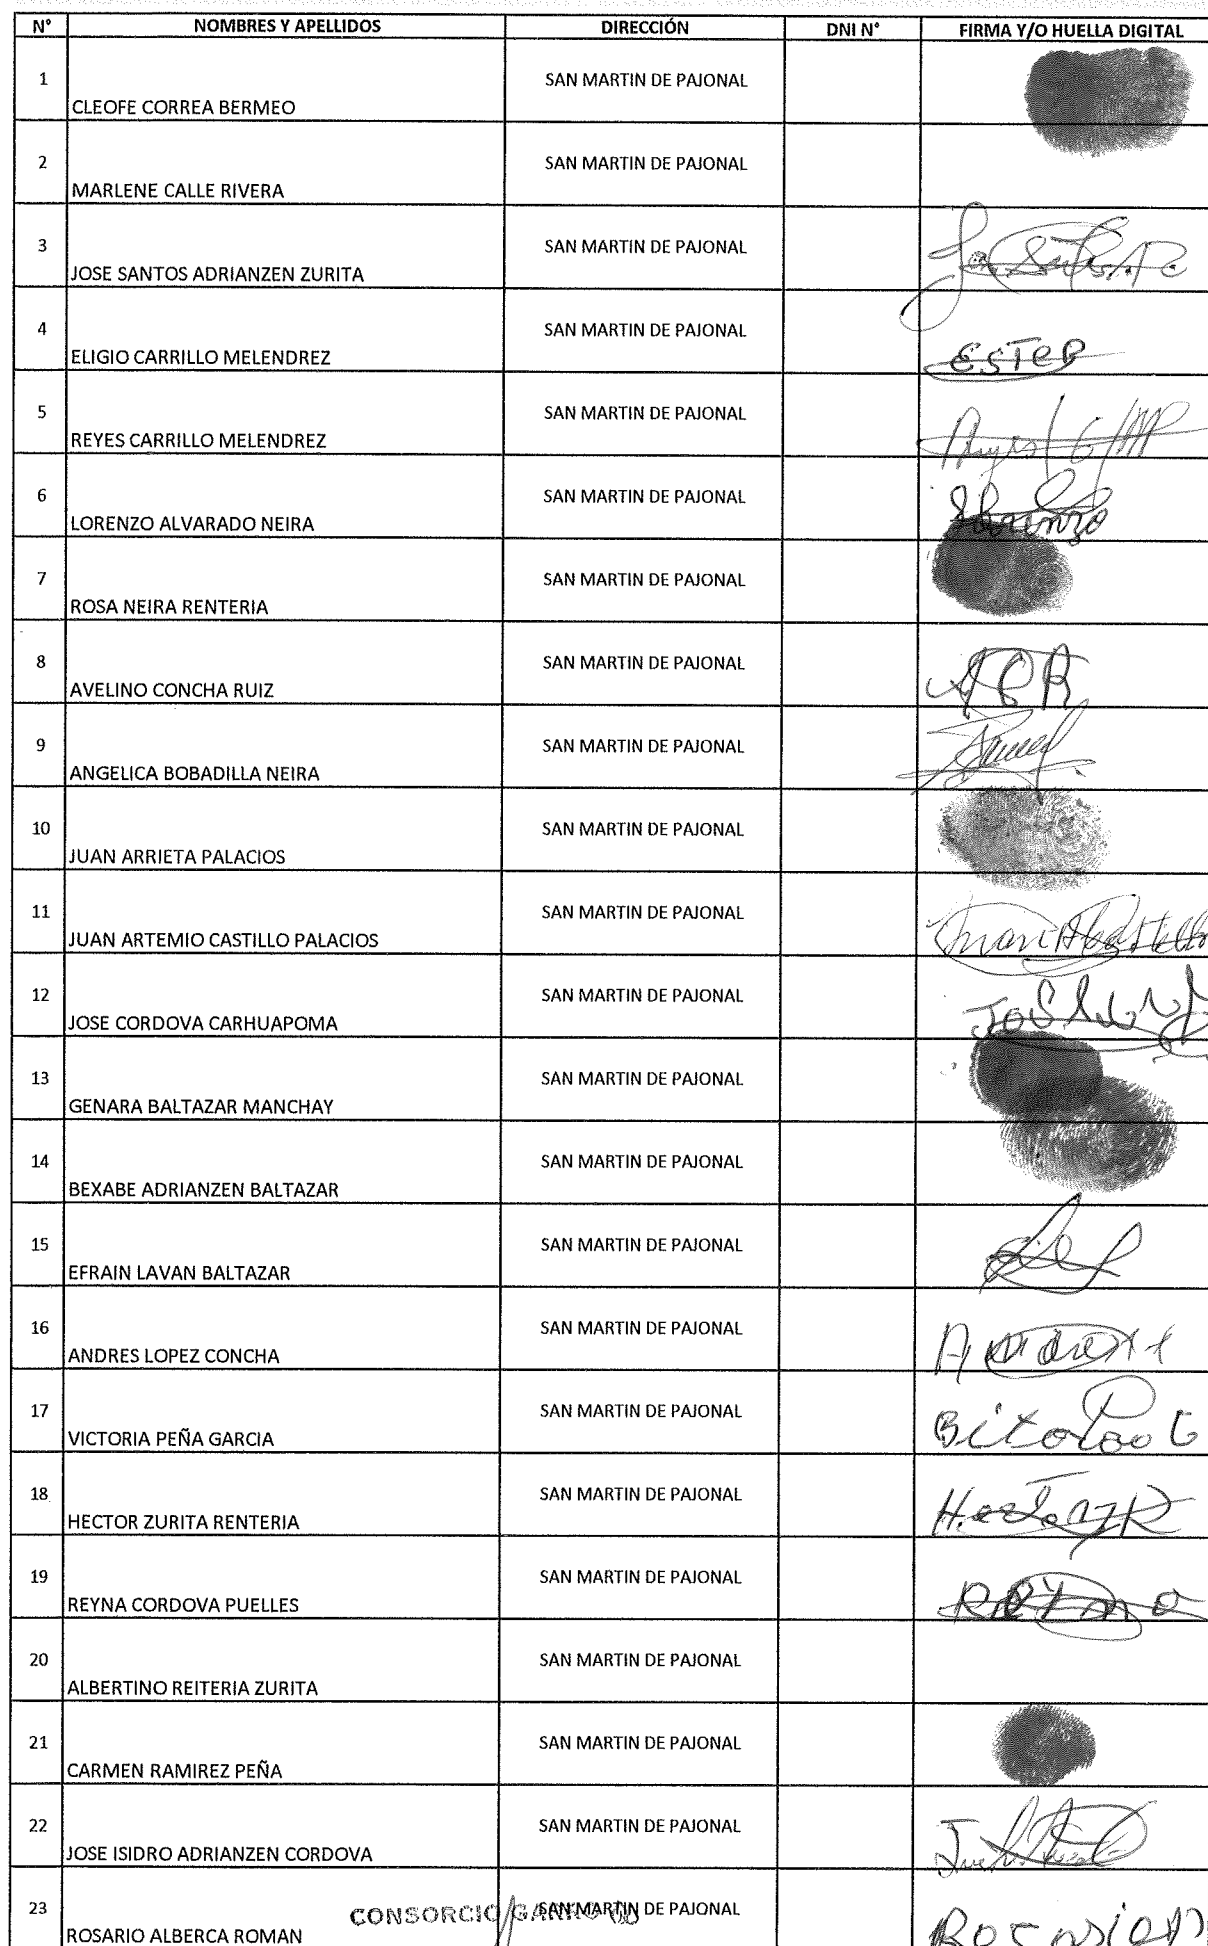 N° NOMBRES Y APELLIDOS DIRECCIÓN DNI N° FIRMA Y/O HUELLA DIGITAL
1 CLEOFE CORREA BERMEO SAN MARTIN DE PAJONAL
2 MARLENE CALLE RIVERA SAN MARTIN DE PAJONAL
3 JOSE SANTOS ADRIANZEN ZURITA SAN MARTIN DE PAJONAL
4 ELIGIO CARRILLO MELENDREZ SAN MARTIN DE PAJONAL
5 REYES CARRILLO MELENDREZ SAN MARTIN DE PAJONAL
6 LORENZO ALVARADO NEIRA SAN MARTIN DE PAJONAL
7 ROSA NEIRA RENTERIA SAN MARTIN DE PAJONAL
8 AVELINO CONCHA RUIZ SAN MARTIN DE PAJONAL ACR
9 ANGELICA BOBADILLA NEIRA SAN MARTIN DE PAJONAL
10 JUAN ARRIETA PALACIOS SAN MARTIN DE PAJONAL
11 JUAN ARTEMIO CASTILLO PALACIOS SAN MARTIN DE PAJONAL
12 JOSE CORDOVA CARHUAPOMA SAN MARTIN DE PAJONAL
13 GENARA BALTAZAR MANCHAY SAN MARTIN DE PAJONAL
14 BEXABE ADRIANZEN BALTAZAR SAN MARTIN DE PAJONAL
15 EFRAIN LAVAN BALTAZAR SAN MARTIN DE PAJONAL
16 ANDRES LOPEZ CONCHA SAN MARTIN DE PAJONAL
17 VICTORIA PEÑA GARCIA SAN MARTIN DE PAJONAL
18 HECTOR ZURITA RENTERIA SAN MARTIN DE PAJONAL
19 REYNA CORDOVA PUELLES SAN MARTIN DE PAJONAL
20 ALBERTINO REITERIA ZURITA SAN MARTIN DE PAJONAL
21 CARMEN RAMIREZ PEÑA SAN MARTIN DE PAJONAL
22 JOSE ISIDRO ADRIANZEN CORDOVA SAN MARTIN DE PAJONAL
23 ROSARIO ALBERCA ROMAN SAN MARTIN DE PAJONAL
CONSORCIO